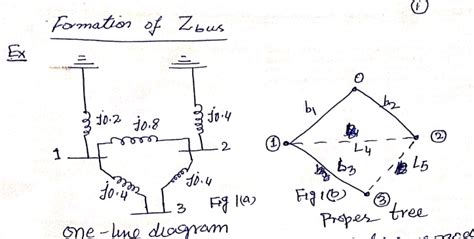 ①
Formation of Zbus
Ex
j0.2
j0.4
j0.8
1
2
j0.4
j0.4
3
Fig 1(a)
one-line diagram
0
b1
b2
①
L4
②
b3
L5
③
Fig 1(b)
Proper tree